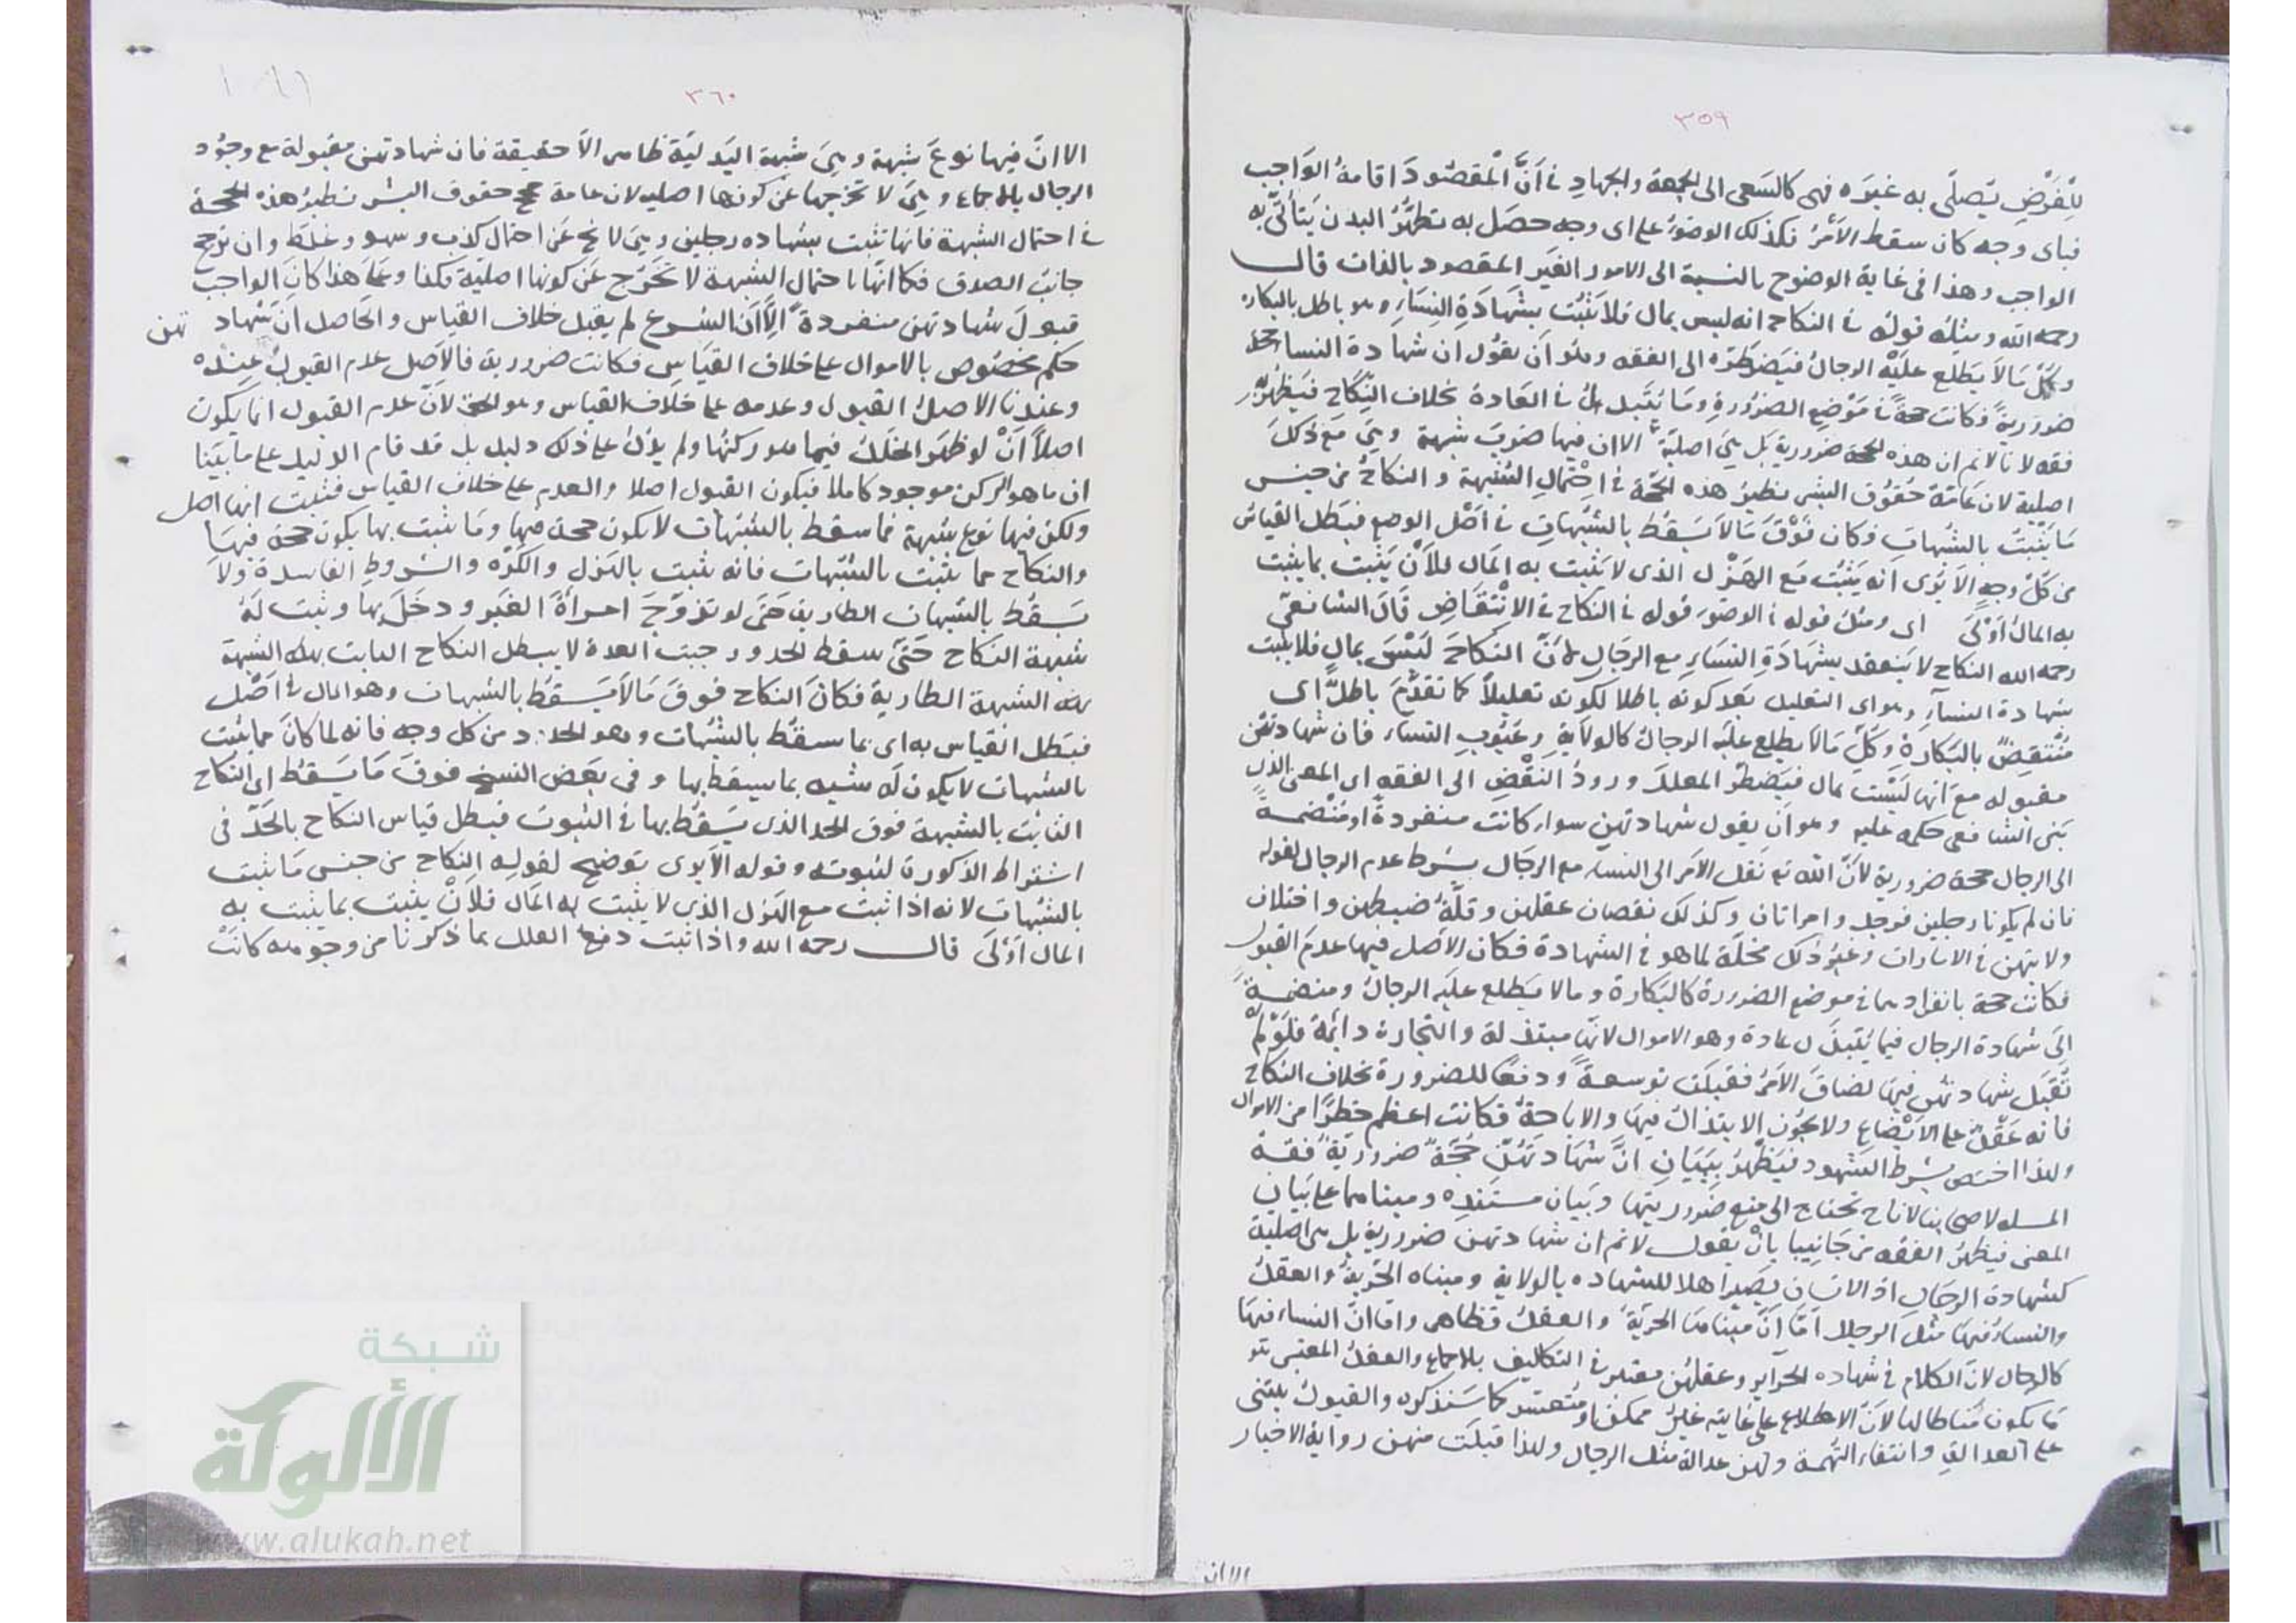 ٣٥٩
للفرض يصلى به غيره فهى كالسعى الى الجمعة والجهاد فى ان المقصود اقامة الواجب
فباى وجه كان سقط الامر فكذلك الوضوء على اى وجه حصل به تطهر البدن يتأتى به
الواجب وهذا فى غاية الوضوح بالنسبة الى الامور الغير المقصود بالذات قال
رحمه الله ومثله قوله فى النكاح انه ليس بمال فلا يثبت بشهادة النساء وهو باطل بالبكاره
وكل ما لا يطلع عليه الرجال فيضطره الى الفقه وهو ان يقول ان شهادة النساء حجة
ضرورية فكانت حجة فى موضع الضرورة وما يتبدل فى العادة بخلاف النكاح فيظهر به
فقه لانا لانم ان هذه الحجة ضرورية بل هى اصلية الا ان فيها ضرب شبهة وهى مع ذلك
اصلية لان عامة حقوق البشر نظير هذه الحجة فى احتمال الشبهة و النكاح من جنس
ما يثبت بالشبهات فكان فوق ما لا يسقط بالشبهات فى اصل الوضع فبطل القياس
من كل وجه الا يرى انه يثبت مع الهزل الذى لا يثبت به المال فلان يثبت بما يثبت
به المال اولى اى ومثل قوله فى الوضوء قوله فى النكاح فى الانتقاض قال الشافعى
رحمه الله النكاح لا ينعقد بشهادة النساء مع الرجال لان النكاح ليس بمال فلا يثبت
شهادة النساء وهو اى التعليل بعد كونه باطلا لكونه تعليلا كما تقدم باطل اى
منتقض بالبكارة وكل ما لا يطلع عليه الرجال كالولاية وعيوب النساء فان شهادتهن
مقبوله مع انها ليست بمال فيضطر المعلل ورود النقض الى الفقه اى المعنى الذى
بنى الشافعى حكمه عليه وهو ان يقول شهادتهن سواء كانت منفردة او منضمة
الى الرجال حجة ضرورية لان الله تع نقل الامر الى النساء مع الرجال بشرط عدم الرجال لقوله
فان لم يكونا رجلين فرجل وامراتان وكذلك نقصان عقلهن وقلة ضبطهن واختلال
ولايتهن فى الامارات وغير ذلك مخلة لما هو فى الشهادة فكان الاصل فيها عدم القبول
فكانت حجة بانفرادها فى موضع الضرورة كالبكارة وما لا يطلع عليه الرجال ومنضمة
الى شهادة الرجال فيما يتبذل عادة وهو الاموال لانها مبتذلة والتجارة دائمة فلو لم
تقبل شهادتهن فيها لضاق الامر فقبلت توسعة ودفعا للضرورة بخلاف النكاح
فانه عقد على الابضاع ولا يجوز الابتذال فيها والاباحة فكانت اعظم خطرا من الاموال
ولهذا اختص بشرط الشهود فيظهر ببيان ان شهادتهن حجة ضرورية فقه
المسله لاصحابنا لانا ح نحتاج الى منع ضروريتها وبيان مستنده ومبناهما على بيان
المعنى فيظهر الفقه من جانبنا بان يقول لانم ان شهادتهن ضرورية بل هى اصلية
كشهادة الرجال اذ الانسان يصير اهلا للشهاده بالولاية ومبناه الحرية والعقل
والنساء فيها مثل الرجال اما ان مبناها الحرية والعقل فظاهر واما ان النساء فيها
كالرجال لان الكلام فى شهادة الحراير وعقلهن معتبر فى التكاليف بالاجماع والعقل المعتبر هو
ما يكون مناطا لها لان الاطلاع على غايته غير ممكن او متعسر كما سنذكره والقبول يبتنى
على العدالة وانتفاء التهمة ولهن عدالة مثل الرجال ولهذا قبلت منهن رواية الاخبار
الا ان
٣٦٠
الا ان فيها نوع شبهة وهى شبهة البدلية ظاهر الا حقيقة فان شهادتهن مقبولة مع وجود
الرجال بالاجماع وهى لا تخرجها عن كونها اصليه لان عامة حقوق البشر نظير هذه الحجة
فى احتمال الشبهة فانها تثبت بشهاده رجلين وهى لا تخ عن احتمال كذب وسهو وغلط وان ترجح
جانب الصدق فكما انها باحتمال الشبهة لا تخرج عن كونها اصلية فكذا وعلى هذا كان الواجب
قبول شهادتهن منفردة الا ان الشرع لم يقبل خلاف القياس والحاصل ان شهادتهن
حكم مخصوص بالاموال على خلاف القياس فكانت ضرورية فالاصل عدم القبول عنده
وعندنا الاصل القبول وعدمه على خلاف القياس وهو الحق لان عدم القبول انما يكون
اصلا ان لو ظهر الخلل فيما هو ركنها ولم يدل على ذلك دليل بل قد قام الدليل على ما بينا
ان ما هو الركن موجود كاملا فيكون القبول اصلا والعدم على خلاف القياس فثبت انها اصل
ولكن فيها نوع شبهة فما سقط بالشبهات لا يكون حجة فيها وما يثبت بها يكون حجة فيها
والنكاح مما يثبت بالشبهات فانه يثبت بالهزل والكره والشروط الفاسدة ولا
يسقط بالشبهات الطارية حتى لو تزوج امراة الغير ودخل بها وثبت له
شبهة النكاح حتى سقط الحد ووجبت العدة لا يبطل النكاح الثابت بهذه الشبهة
بهذه الشبهة الطارية فكان النكاح فوق ما لا يسقط بالشبهات وهو المال فى اصل
فبطل القياس به اى بما يسقط بالشبهات وهو الحدود من كل وجه فانه لما كان مما يثبت
بالشبهات لا يكون له شبه بما يسقط بها وفى بعض النسخ فوق ما يسقط اى النكاح
الثابت بالشبهة فوق الحد الذى يسقط بها فى الثبوت فبطل قياس النكاح بالحد فى
اشتراط الذكورة لثبوته وقوله الا يرى توضيح لقوله النكاح من جنس ما يثبت
بالشبهات لانه اذا ثبت مع الهزل الذى لا يثبت به المال فلان يثبت بما يثبت به
المال اولى قال رحمه الله واذا ثبت دفع العلل بما ذكرنا من وجوهه كانت
شبكة
الألوكة
www.alukah.net